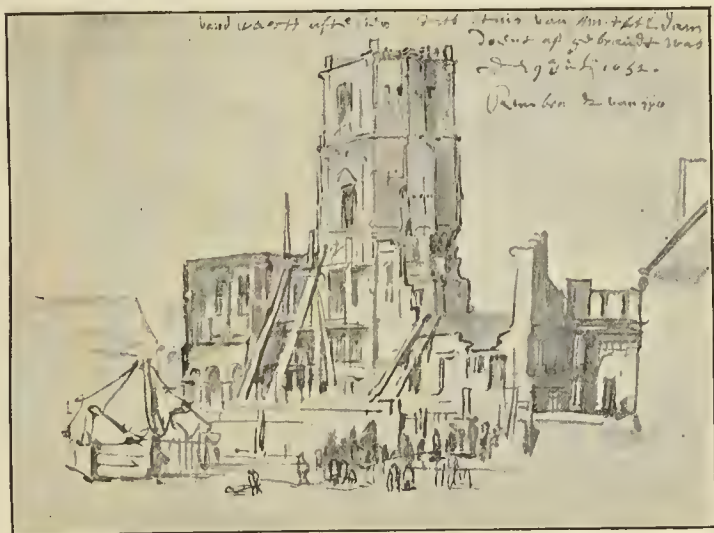 vand waech afte sien stats huis van Amsteldam
doent afgebrandt was
den 9 Julij 1652.
Rembrandt van rijn